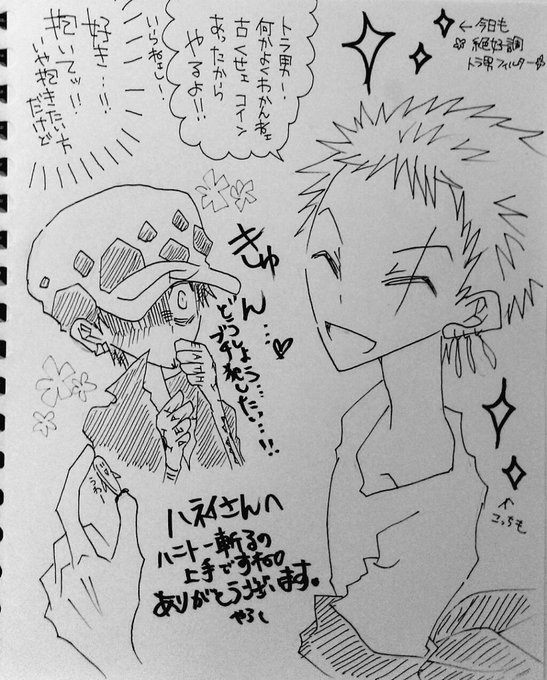 ←今日も
絶好調
トラ男フィルター
トラ男ー!
何かよくわかんねェ
古くせェコイン
あったから
やるよ!!
いらねェし!
好き…!!
抱いてッ!!
いや抱きたい方
だけど
きゅん…♡
どうしよう…
ブチ犯したいッ…!!
↑
こっちも
ハネイさんへ
ハニトー斬るの
上手ですね
ありがとうございます。